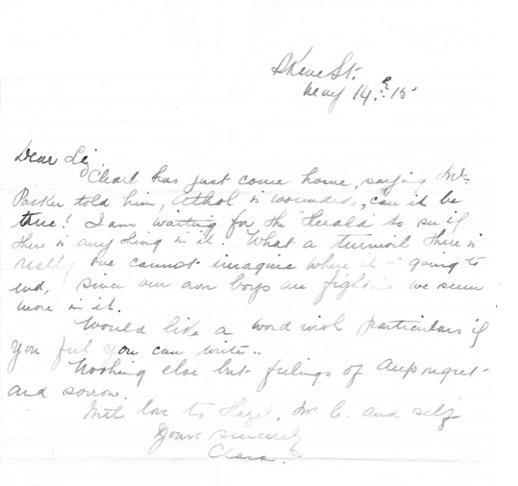 Skene St.
May 14th. 15
Dear Liz,
Charl has just come home, saying Mr.
Parker told him, Athol is wounded, can it be
true! I am waiting for the "Herald" to see if
there is any thing in it. What a turmoil there is
really one cannot imagine where it is going to
end, since our own boys are fighting we seem
more in it.
Would like a word with particulars if
you feel you can write..
Nothing else but feelings of deep regret
and sorrow.
With love to Hazel, Mr C. and self
Yours sincerely
Clara.